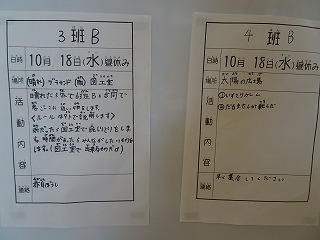 3 班 B
日時 10月 18日(水)昼休み
場所 (晴れ)グラウンド (雨)図工室
活動内容
晴れたら外で
(ルールは
図工室で絵しりとりをしま
す。時間があったらみんながしたいものを
します。(図工室で出来るものだけ)
連絡 赤白ぼうし
4 班 B
日時 10月 18日(水)昼休み
場所 太陽の広場
活動内容
①いすとりゲーム
②だるまさんが転んだ
連絡 早く集合してください